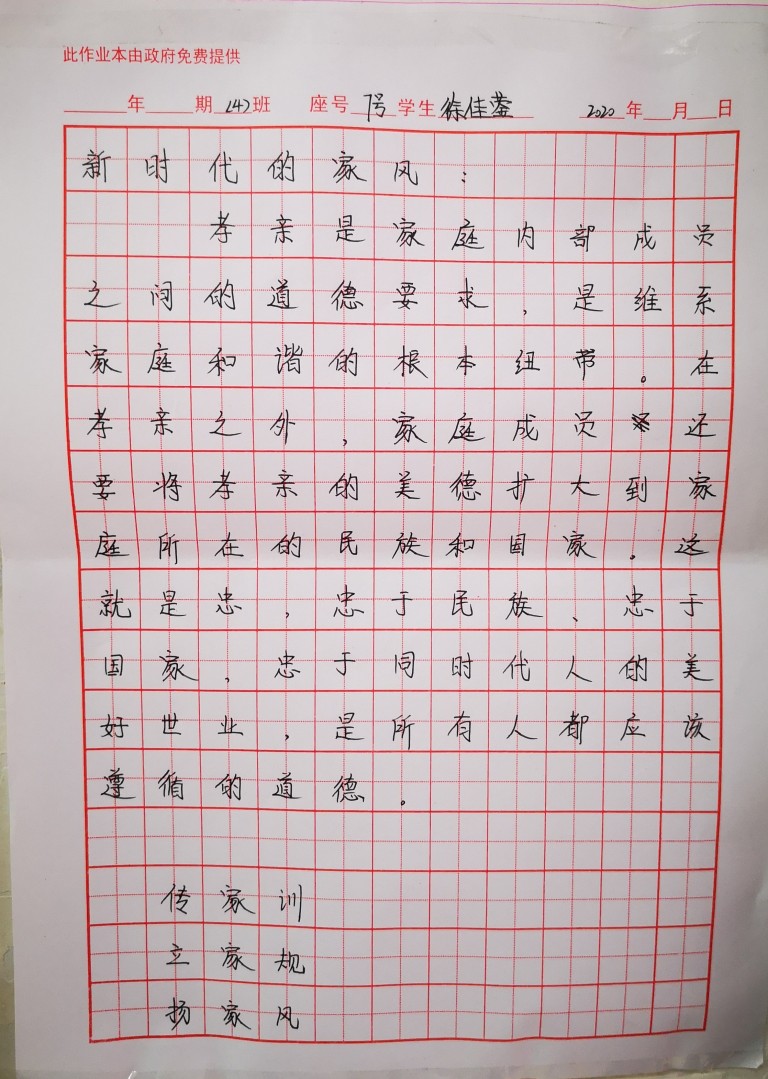 此作业本由政府免费提供
年 期 (4)班 座号 7号 学生 徐佳蓥 2020 年 月 日
新时代的家风：
孝亲是家庭内部成员
之间的道德要求，是维系
家庭和谐的根本纽带。在
孝亲之外，家庭成员还
要将孝亲的美德扩大到家
庭所在的民族和国家。这
就是忠，忠于民族、忠于
国家，忠于同时代人的美
好世业，是所有人都应该
遵循的道德。
传家训
立家规
扬家风